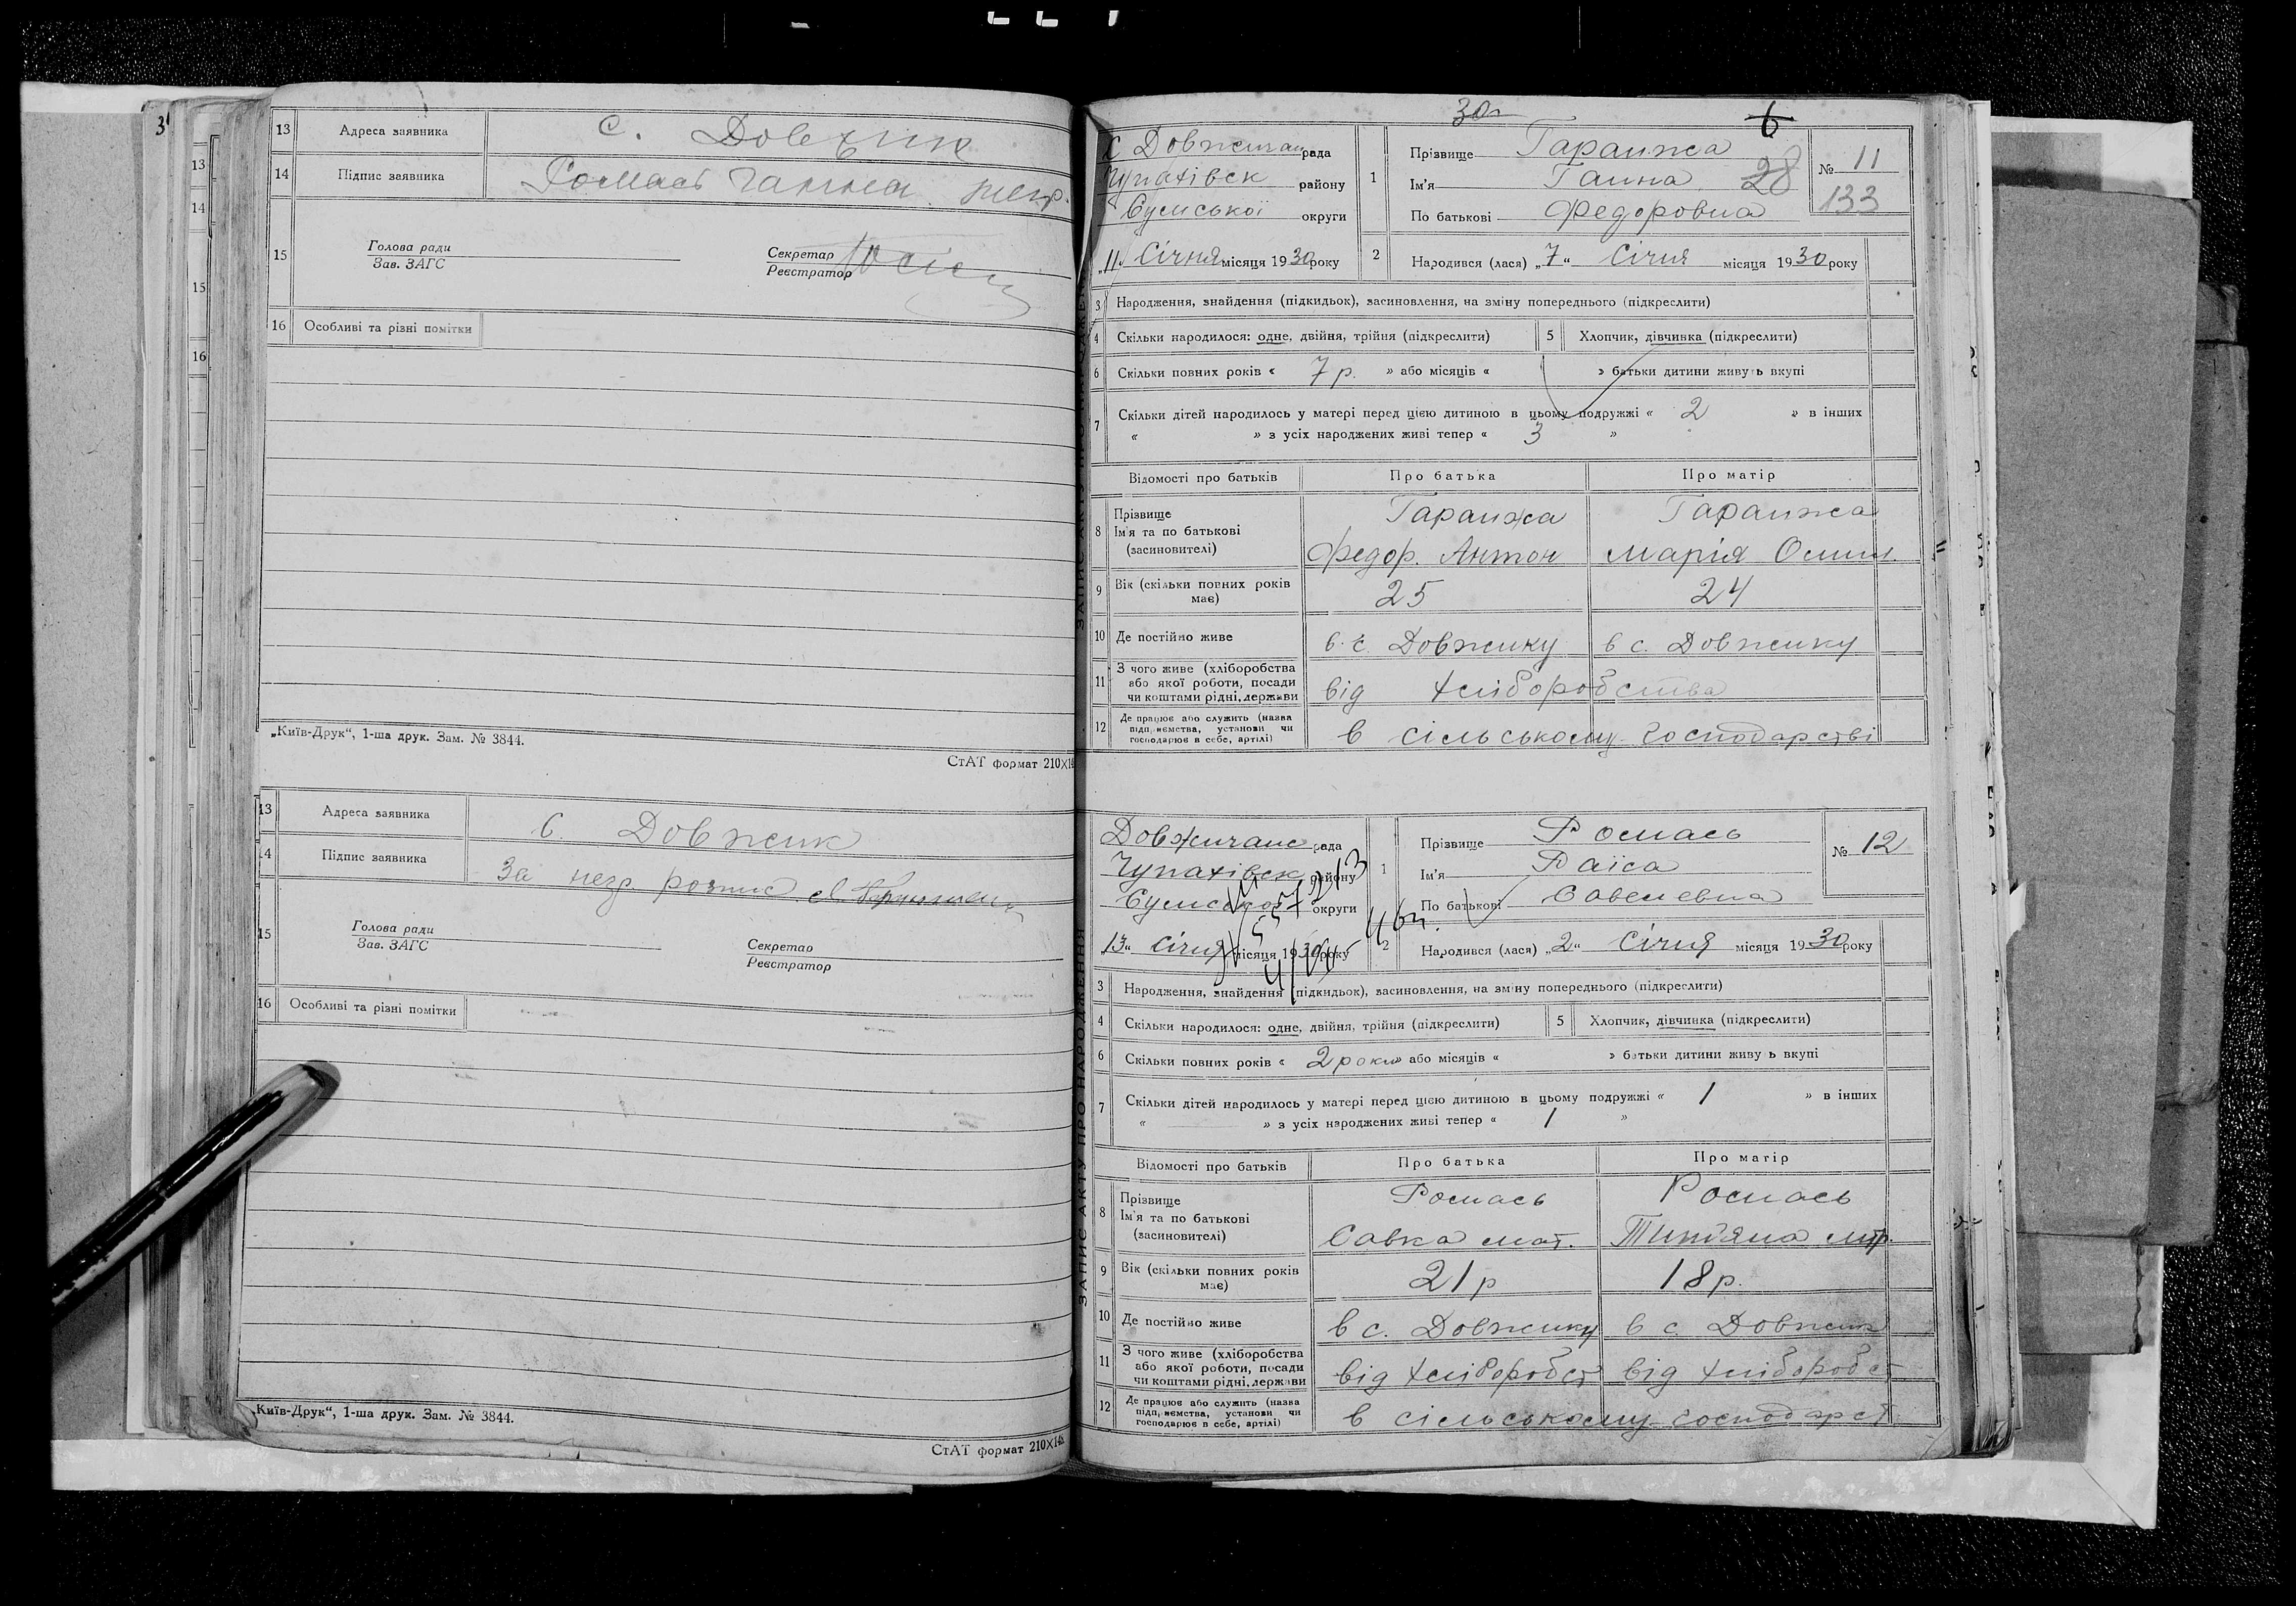 13 Адреса заявника с. Довжик
14 Підпис заявника Ромась Ганна негр.
15 Голова ради
Зав. ЗАГС
Секретар
Реєстратор
16 Особливі та різні помітки
„Київ-Друк“, 1-ша друк. Зам. № 3844.
СтАТ формат 210×14
13 Адреса заявника С. Довжик
14 Підпис заявника За негр розпис
15 Голова ради
Зав. ЗАГС
Секретар
Реєстратор
16 Особливі та різні помітки
„Київ-Друк“, 1-ша друк. Зам. № 3844.
СтАТ формат 210×148
ЗАПИС АКТУ ПРО НАРОДЖЕННЯ
30
6
С Довжичан рада
Чупахівск району
Сумської округи
„11“ Січня місяця 1930 року
1 Прізвище Гаранжа
Ім'я Ганна 28
По батькові Федоровна
№ 11
133
2 Народився (лася) „7“ Січня місяця 1930 року
3 Народження, знайдення (підкидьок), засиновлення, на зміну попереднього (підкреслити)
4 Скільки народилося: одне, двійня, трійня (підкреслити) 5 Хлопчик, дівчинка (підкреслити)
6 Скільки повних років « 7 р. » або місяців « » батьки дитини живуть вкупі
7 Скільки дітей народилось у матері перед цією дитиною в цьому подружжі « 2 » в інших
« » з усіх народжених живі тепер « 3 »
Відомості про батьків Про батька Про матір
8 Прізвище Гаранжа Гаранжа
Ім'я та по батькові
(засиновителі) Федор. Антон Марія Осип.
9 Вік (скільки повних років має) 25 24
10 Де постійно живе в с. Довжику в с. Довжику
11 З чого живе (хліборобства
або якої роботи, посади
чи коштами рідні, держави від хліборобства
12 Де працює або служить (назва
підприємства, установи чи
господарює в себе, артілі) в сільському господарстві
Довжичанс рада
Чупахівск району
Сумської округи
13“ Січня місяця 1930 року
1 Прізвище Ромась
Ім'я Раїса
По батькові Савелевна
№ 12
2 Народився (лася) „2“ Січня місяця 1930 року
3 Народження, знайдення (підкидьок), засиновлення, на зміну попереднього (підкреслити)
4 Скільки народилося: одне, двійня, трійня (підкреслити) 5 Хлопчик, дівчинка (підкреслити)
6 Скільки повних років « 2 роки » або місяців « » батьки дитини живуть вкупі
7 Скільки дітей народилось у матері перед цією дитиною в цьому подружжі « 1 » в інших
« » з усіх народжених живі тепер « 1 »
Відомості про батьків Про батька Про матір
8 Прізвище Ромась Ромась
Ім'я та по батькові
(засиновителі) Савка мат. Титяна мтр.
9 Вік (скільки повних років має) 21 р 18 р.
10 Де постійно живе в с. Довжику в с. Довжик
11 З чого живе (хліборобства
або якої роботи, посади
чи коштами рідні, держави від хліборобст від хліборобст
12 Де працює або служить (назва
підприємства, установи чи
господарює в себе, артілі) в сільському господарст